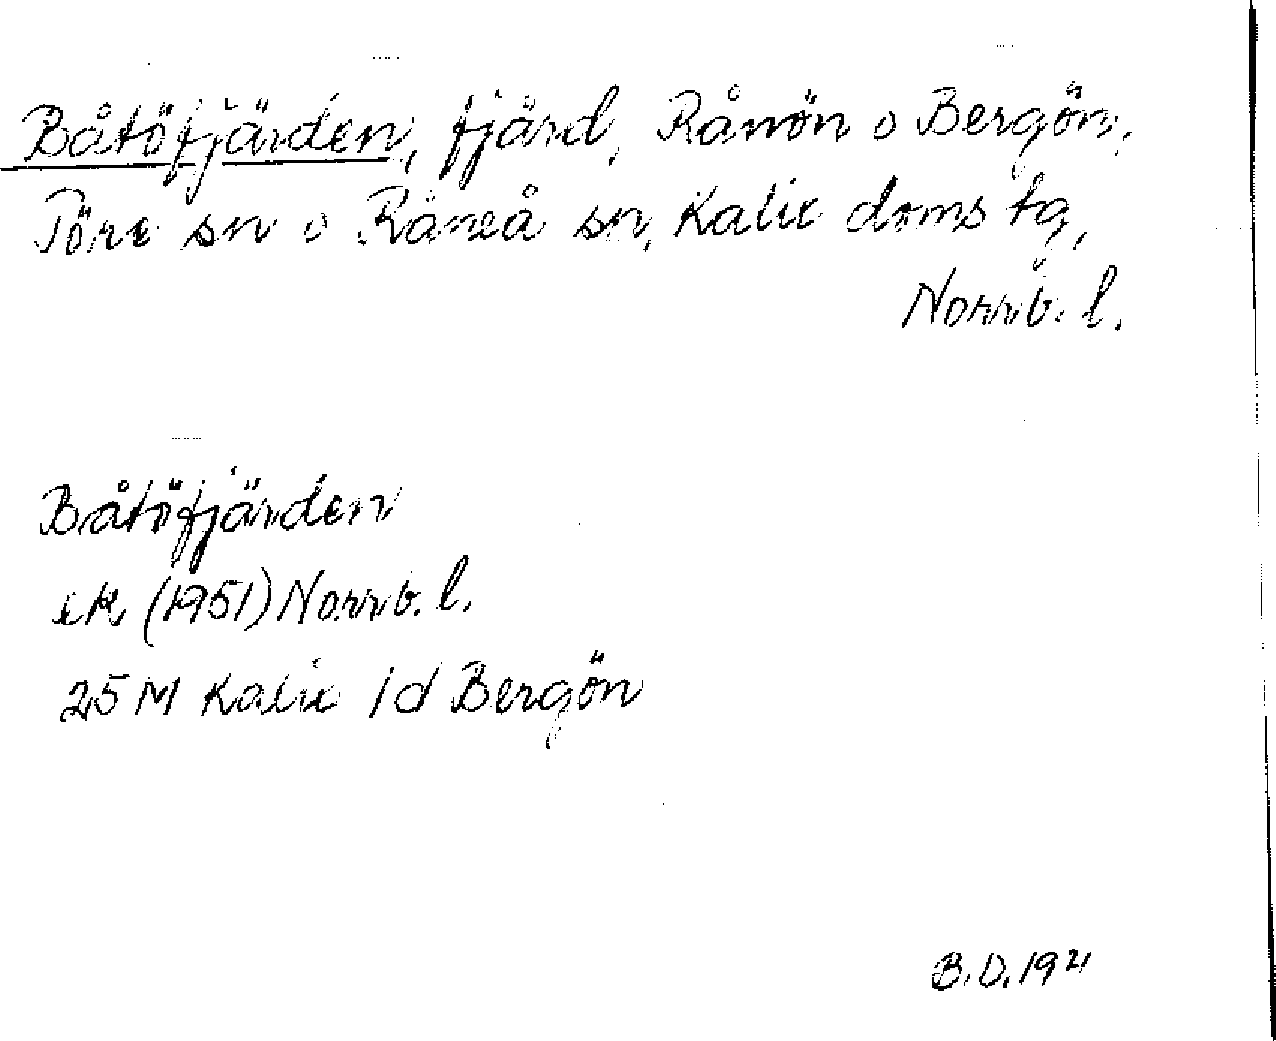 Båtöfjärden, fjärd, Rånön o Bergön,
Töre sn o Råneå sn, Kalix doms tg,
Norrb. l.
Båtöfjärden
ek (1951) Norrb. l.
25 M Kalix 1d Bergön
B.D.19